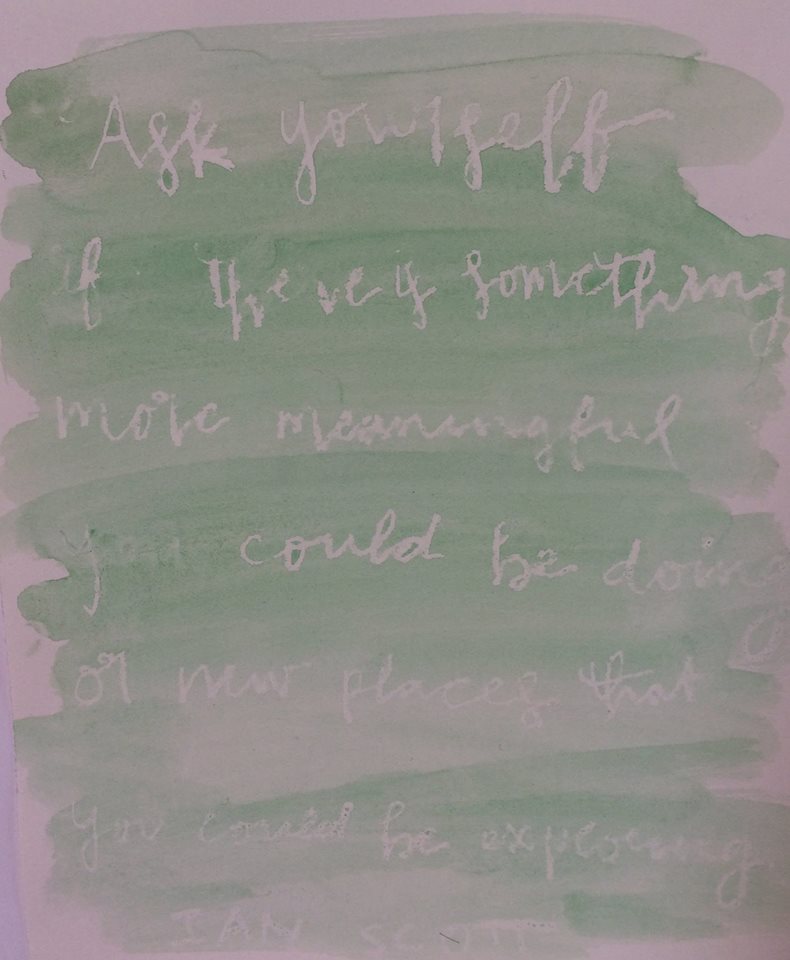 Ask yourself
if there's something
more meaningful
you could be doing
or new places that
you could be exploring.
IAN SCOTT